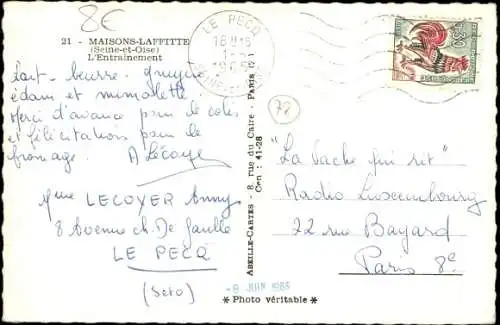 8€
21 - MAISONS-LAFFITTE
(Seine-et-Oise)
L'Entraînement
LE PECQ
lait - beurre - gruyère
édam et mimolette
Merci d'avance pour le colis
et félicitations pour le
fromage.
A Lécoyer
Mme LECOYER Anny
8 Avenue ch. De Gaulle
LE PECQ
(Seto)
ABEILLE-CARTES - 8, rue du Caire - PARIS
Cen : 41-28
78
"La Vache qui rit"
Radio Luxembourg
22 rue Bayard
Paris 8e
-8 JUIN 1965
* Photo véritable *